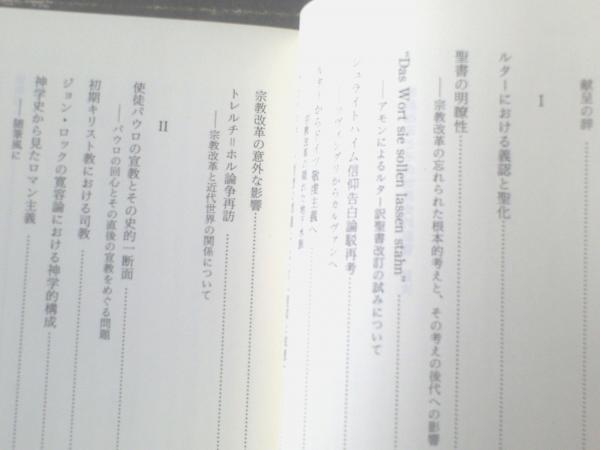 献呈の辞
I
ルターにおける義認と聖化
聖書の明瞭性
——宗教改革の忘れられた根本的考えと、その考えの後代への影響
"Das Wort sie sollen lassen stahn"
——アモンによるルター訳聖書改訂の試みについて
シュライトハイム信仰告白論駁再考
——ツヴィングリからカルヴァンへ
からドイツ敬虔主義へ
宗教改革の意外な影響
トレルチ＝ホル論争再訪
——宗教改革と近代世界の関係について
II
使徒パウロの宣教とその史的一断面
——パウロの回心とその直後の宣教をめぐる問題
初期キリスト教における司教
ジョン・ロックの寛容論における神学的構成
神学史から見たロマン主義
——随筆風に